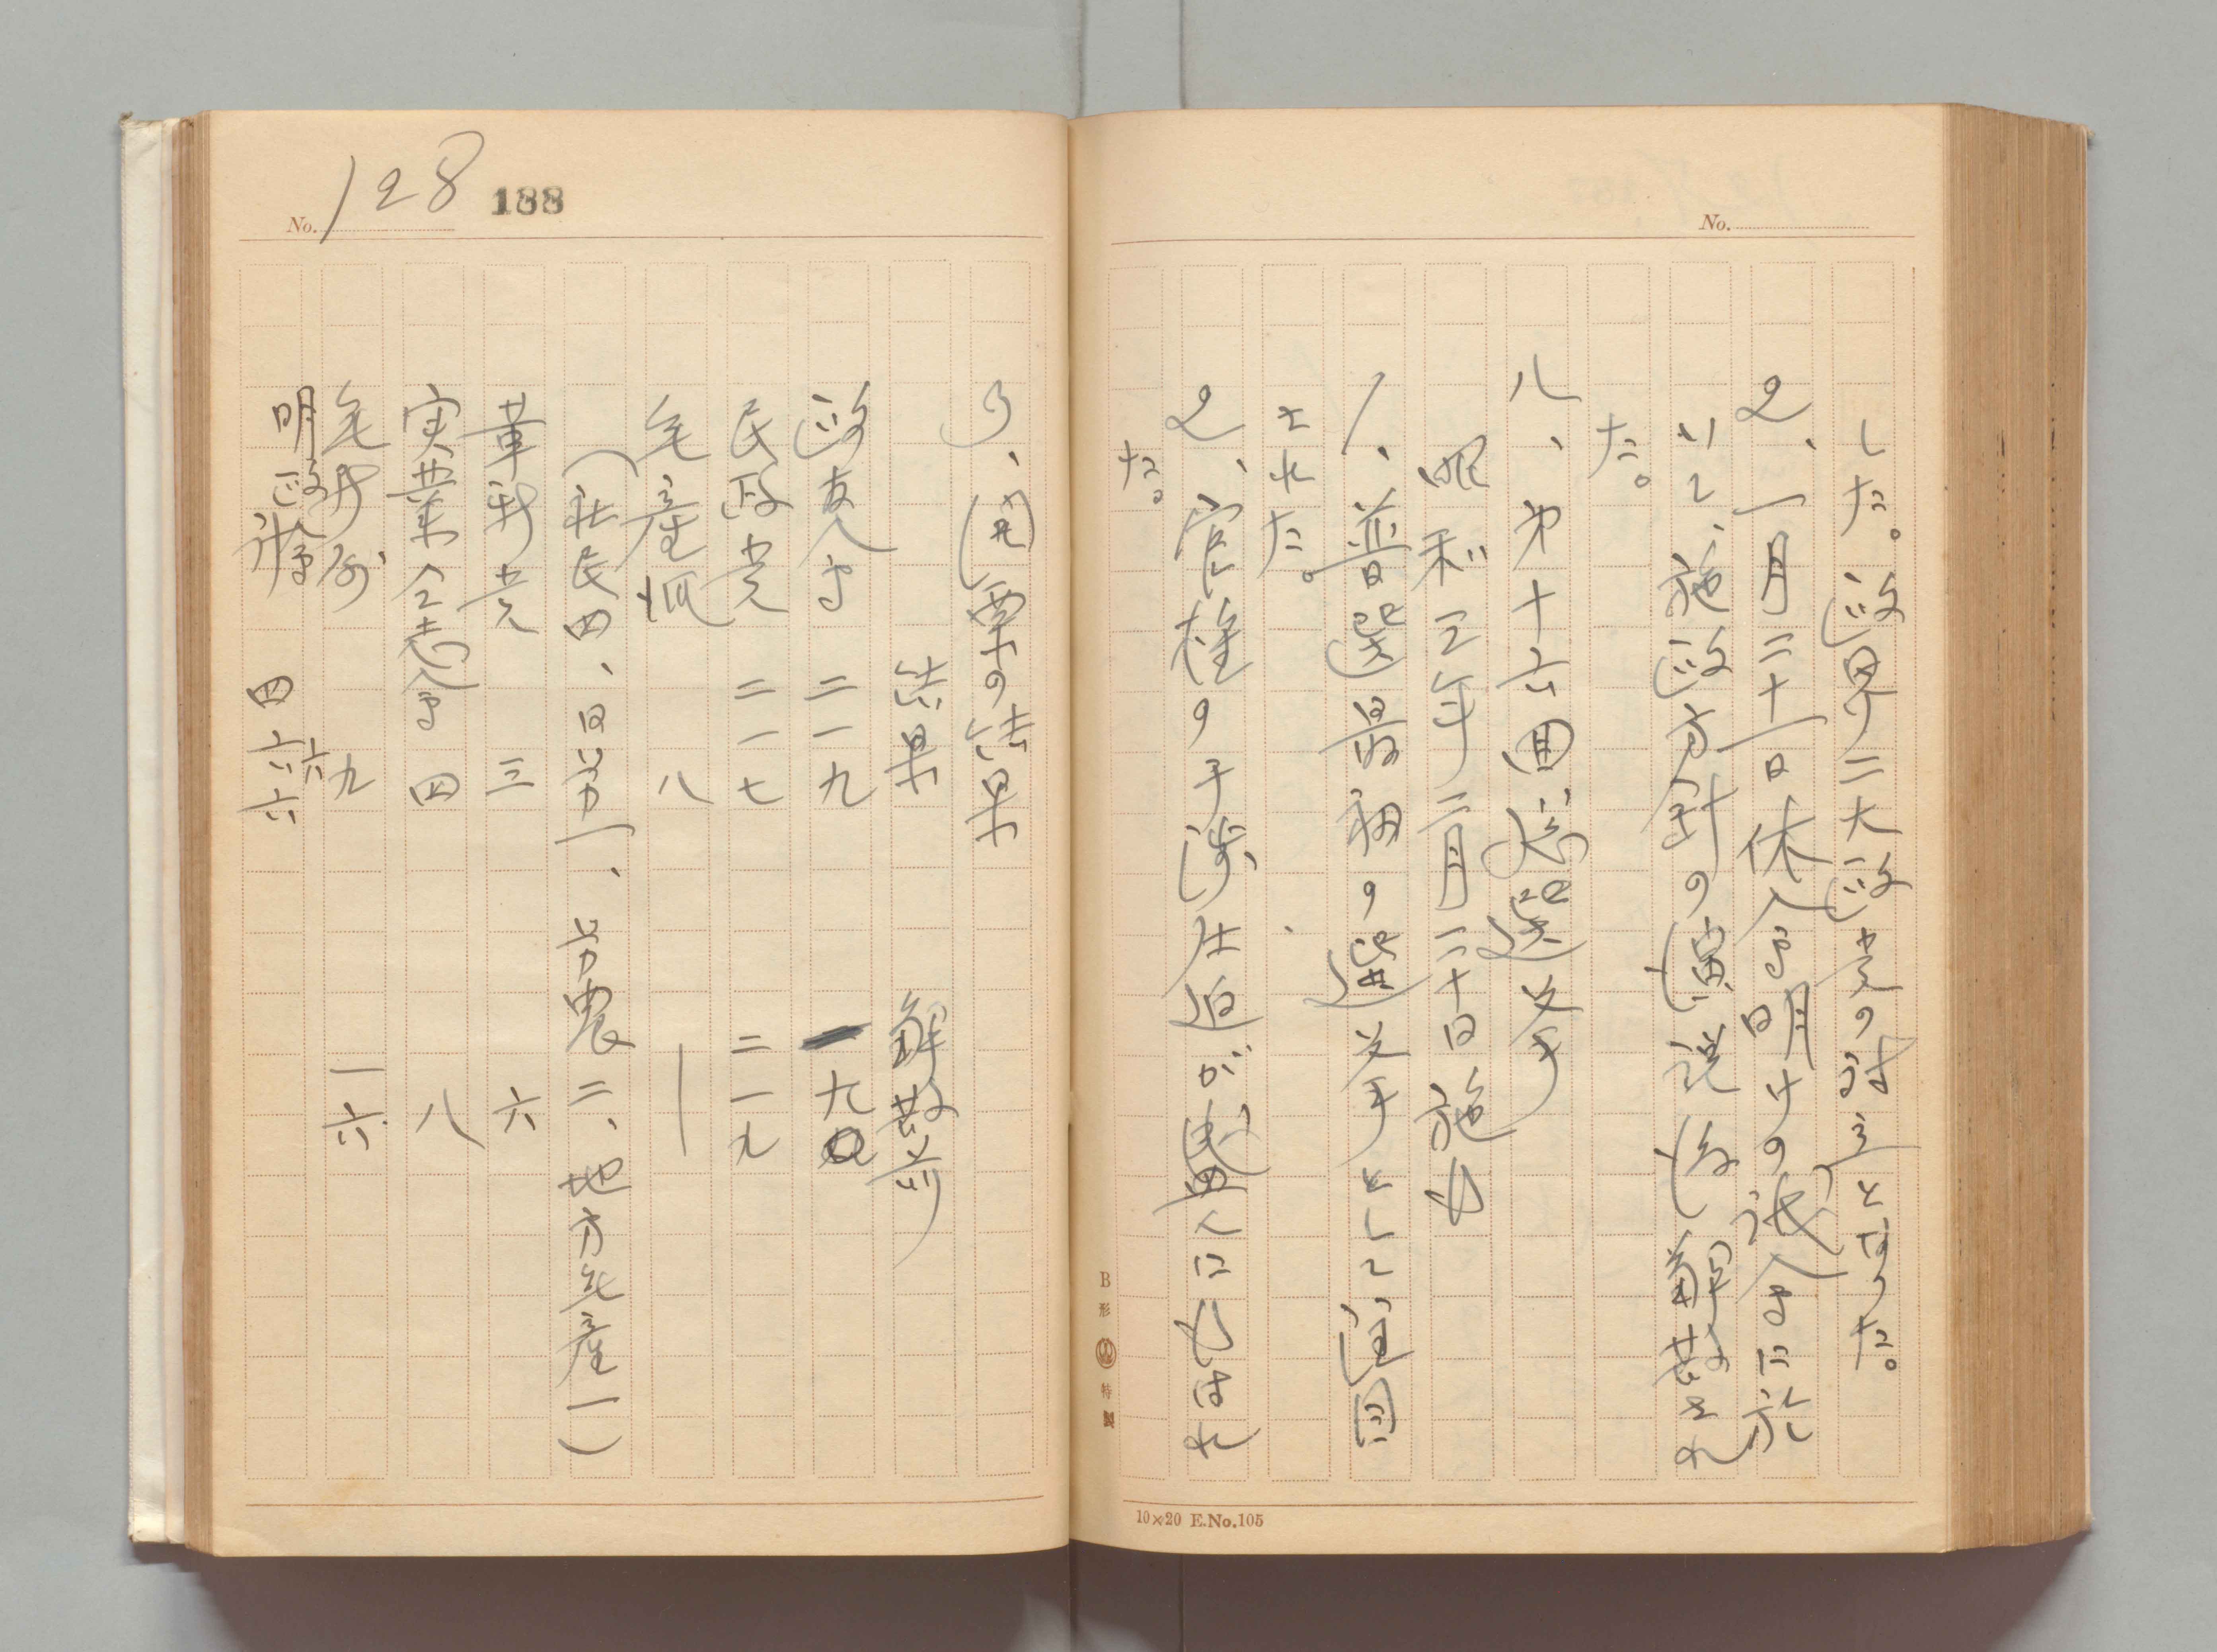 した。政界ハ二大政党の対立となった。
2、一月二十一日休会明けの議会に於
いて、施政方針の演説後解散され
た。
八、第十六回総選挙
昭和三年二月二十日施行
1、普選最初の選挙として
された。
2、官権の干渉圧迫が露骨に行はれ
た。
B形 特製
10×20 E.No.105
No.
No. 128 188
3、開票の結果
結果 解散前
政友会 二一九 一九〇
民政党 二一七 二一九
無産派 八 ー
(社民四、日労一、労農二、地方無産一)
革新党 三 六
実業同志会 四 八
無所属 九 一六
明政会 六
計 四六六